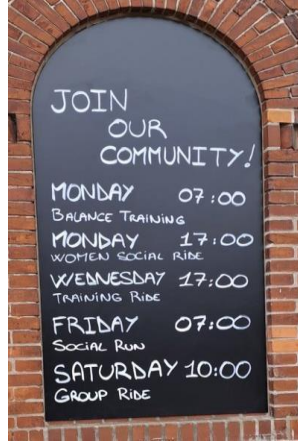 JOIN
OUR
COMMUNITY!
MONDAY 07:00
BALANCE TRAINING
MONDAY 17:00
WOMEN SOCIAL RIDE
WEDNESDAY 17:00
TRAINING RIDE
FRIDAY 07:00
SOCIAL RUN
SATURDAY 10:00
GROUP RIDE